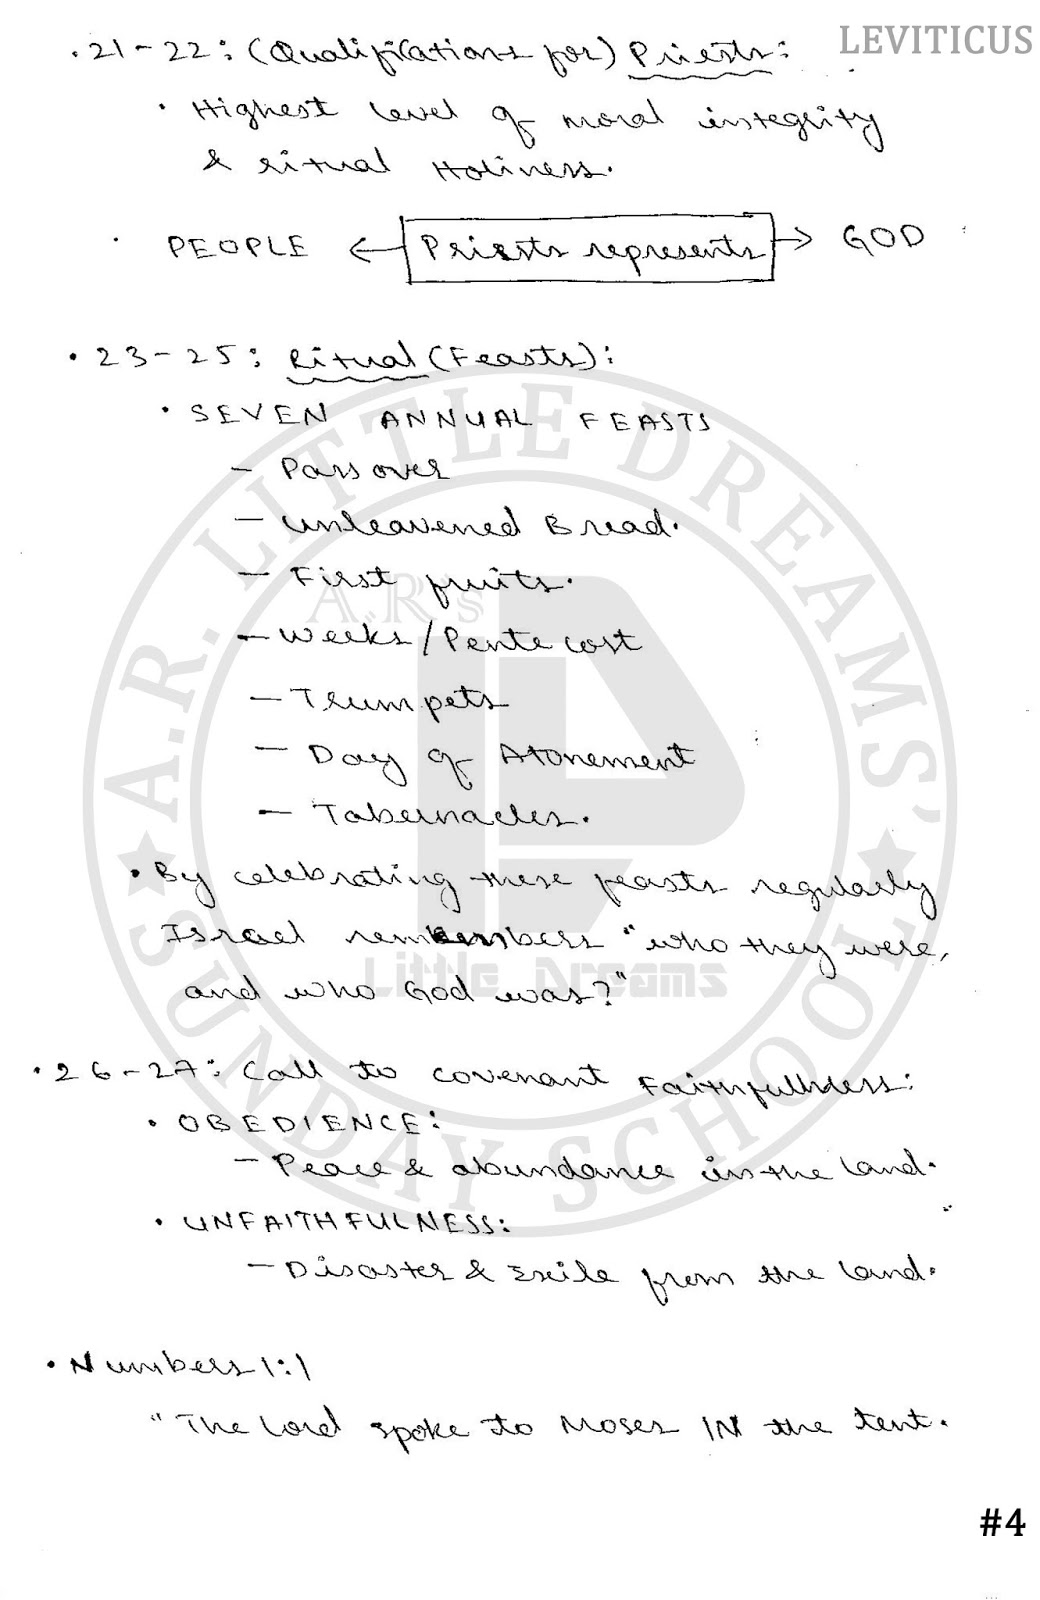 LEVITICUS
• 21-22: (Qualifications for) Priests:
• Highest level of moral integrity
& ritual Holiness.
• PEOPLE ← Priests represents → GOD
• 23-25: Ritual (Feasts):
• SEVEN ANNUAL FEASTS
- Passover
- Unleavened Bread.
- First fruits.
- Weeks/Pentecost
- Trumpets
- Day of Atonement
- Tabernacles.
• By celebrating these feasts regularly
Israel remembers "who they were,
and who God was?"
• 26-27: Call to covenant Faithfullness:
• OBEDIENCE:
- Peace & abundance in the land.
• UNFAITHFULNESS:
- Disaster & Exile from the land.
• Numbers 1:1
"The Lord spoke to Moses IN the tent.
#4
A.R. LITTLE DREAMS'
SUNDAY SCHOOL
A.R's
Little Dreams